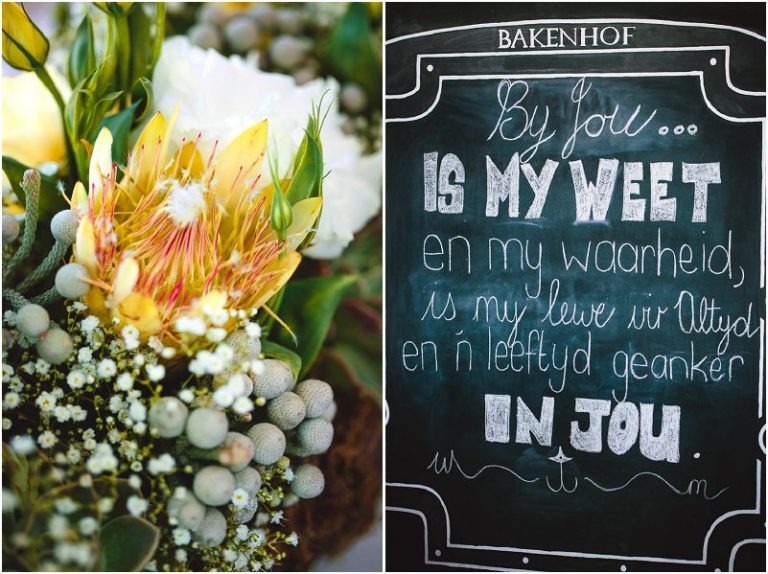 BAKENHOF
By Jou...
IS MY WEET
en my waarheid,
is my lewe vir Altyd
en ń leeftyd geanker
IN JOU.
w m